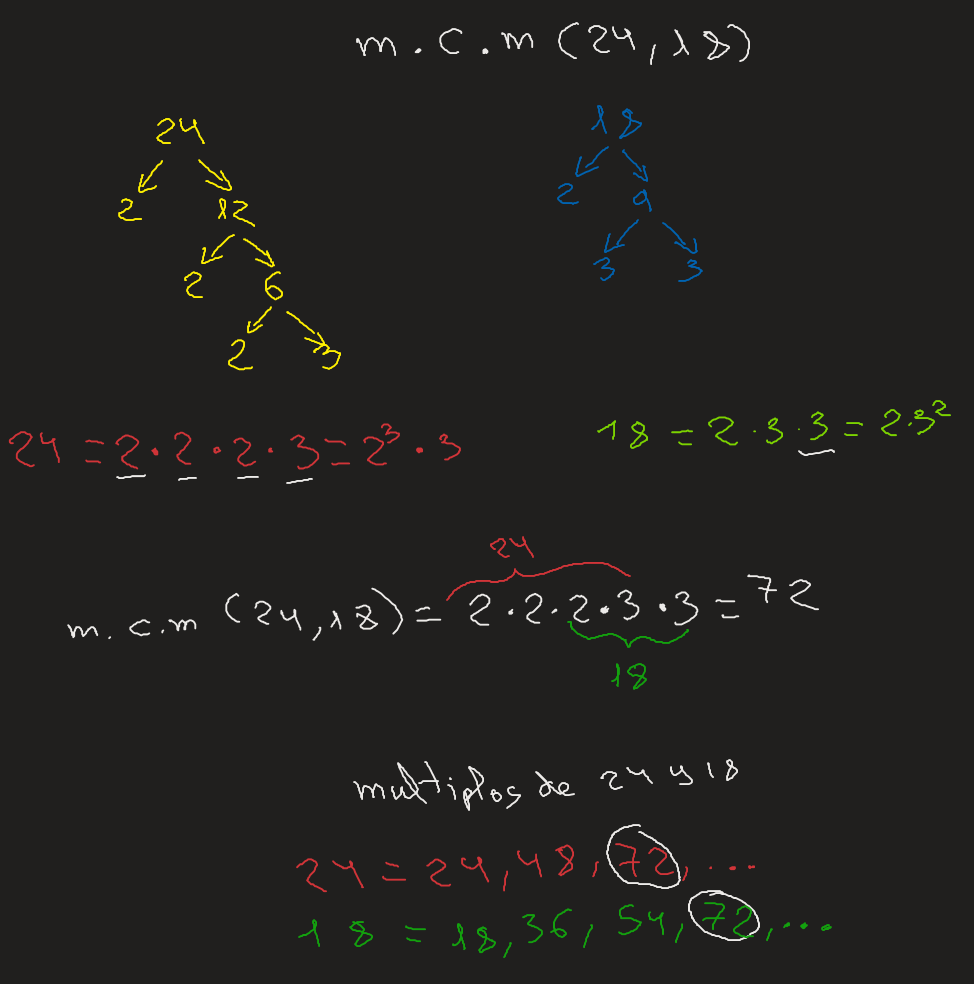 m.c.m (24,18)
24 18
2 12 2 9
2 6 3 3
2 3
24 = 2·2·2·3 = 2³·3
18 = 2·3·3 = 2·3²
24
m.c.m (24,18) = 2·2·2·3·3 = 72
18
multiplos de 24 y 18
24 = 24, 48, 72, ...
18 = 18, 36, 54, 72, ...